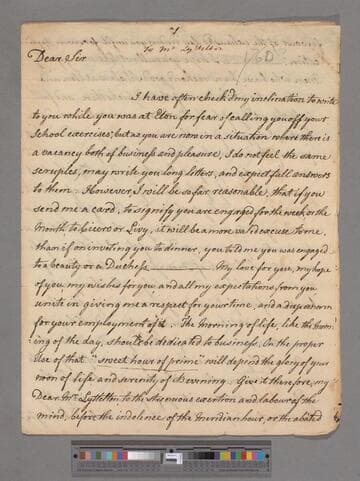 1.
To Mr Lyttelton
Dear Sir
I have often check'd my inclination to write
to you while you was at Eton for fear of calling you off your
School exercises; but as you are now in a situation where there is
a vacancy both of business and pleasure, I do not feel the same
scruples, may write you long letters, and expect full answers
to them. However I will be so far reasonable, that if you
send me a card, to signify you are engaged for the week or the
Month to Cicero or Livy, it will be a more valid excuse to me,
than if on inviting you to dinner, you told me you was engaged
to a beauty or a Duchess. My love for you, my hope
of you, my wishes for you and all my expectations from you
unite in giving me a respect for your time, and a disconcern
for your employment of it. The morning of life, like the morn-
ing of the day, should be dedicated to business, On the proper
Use of that "sweet hour of prime" will depend the glory of your
noon of life and serenity of its evening. Give it therefore, my
Dear Mr. Lyttelton to the strenuous exertion and labour of the
mind, before the indolence of the Meridian hour, or the abated